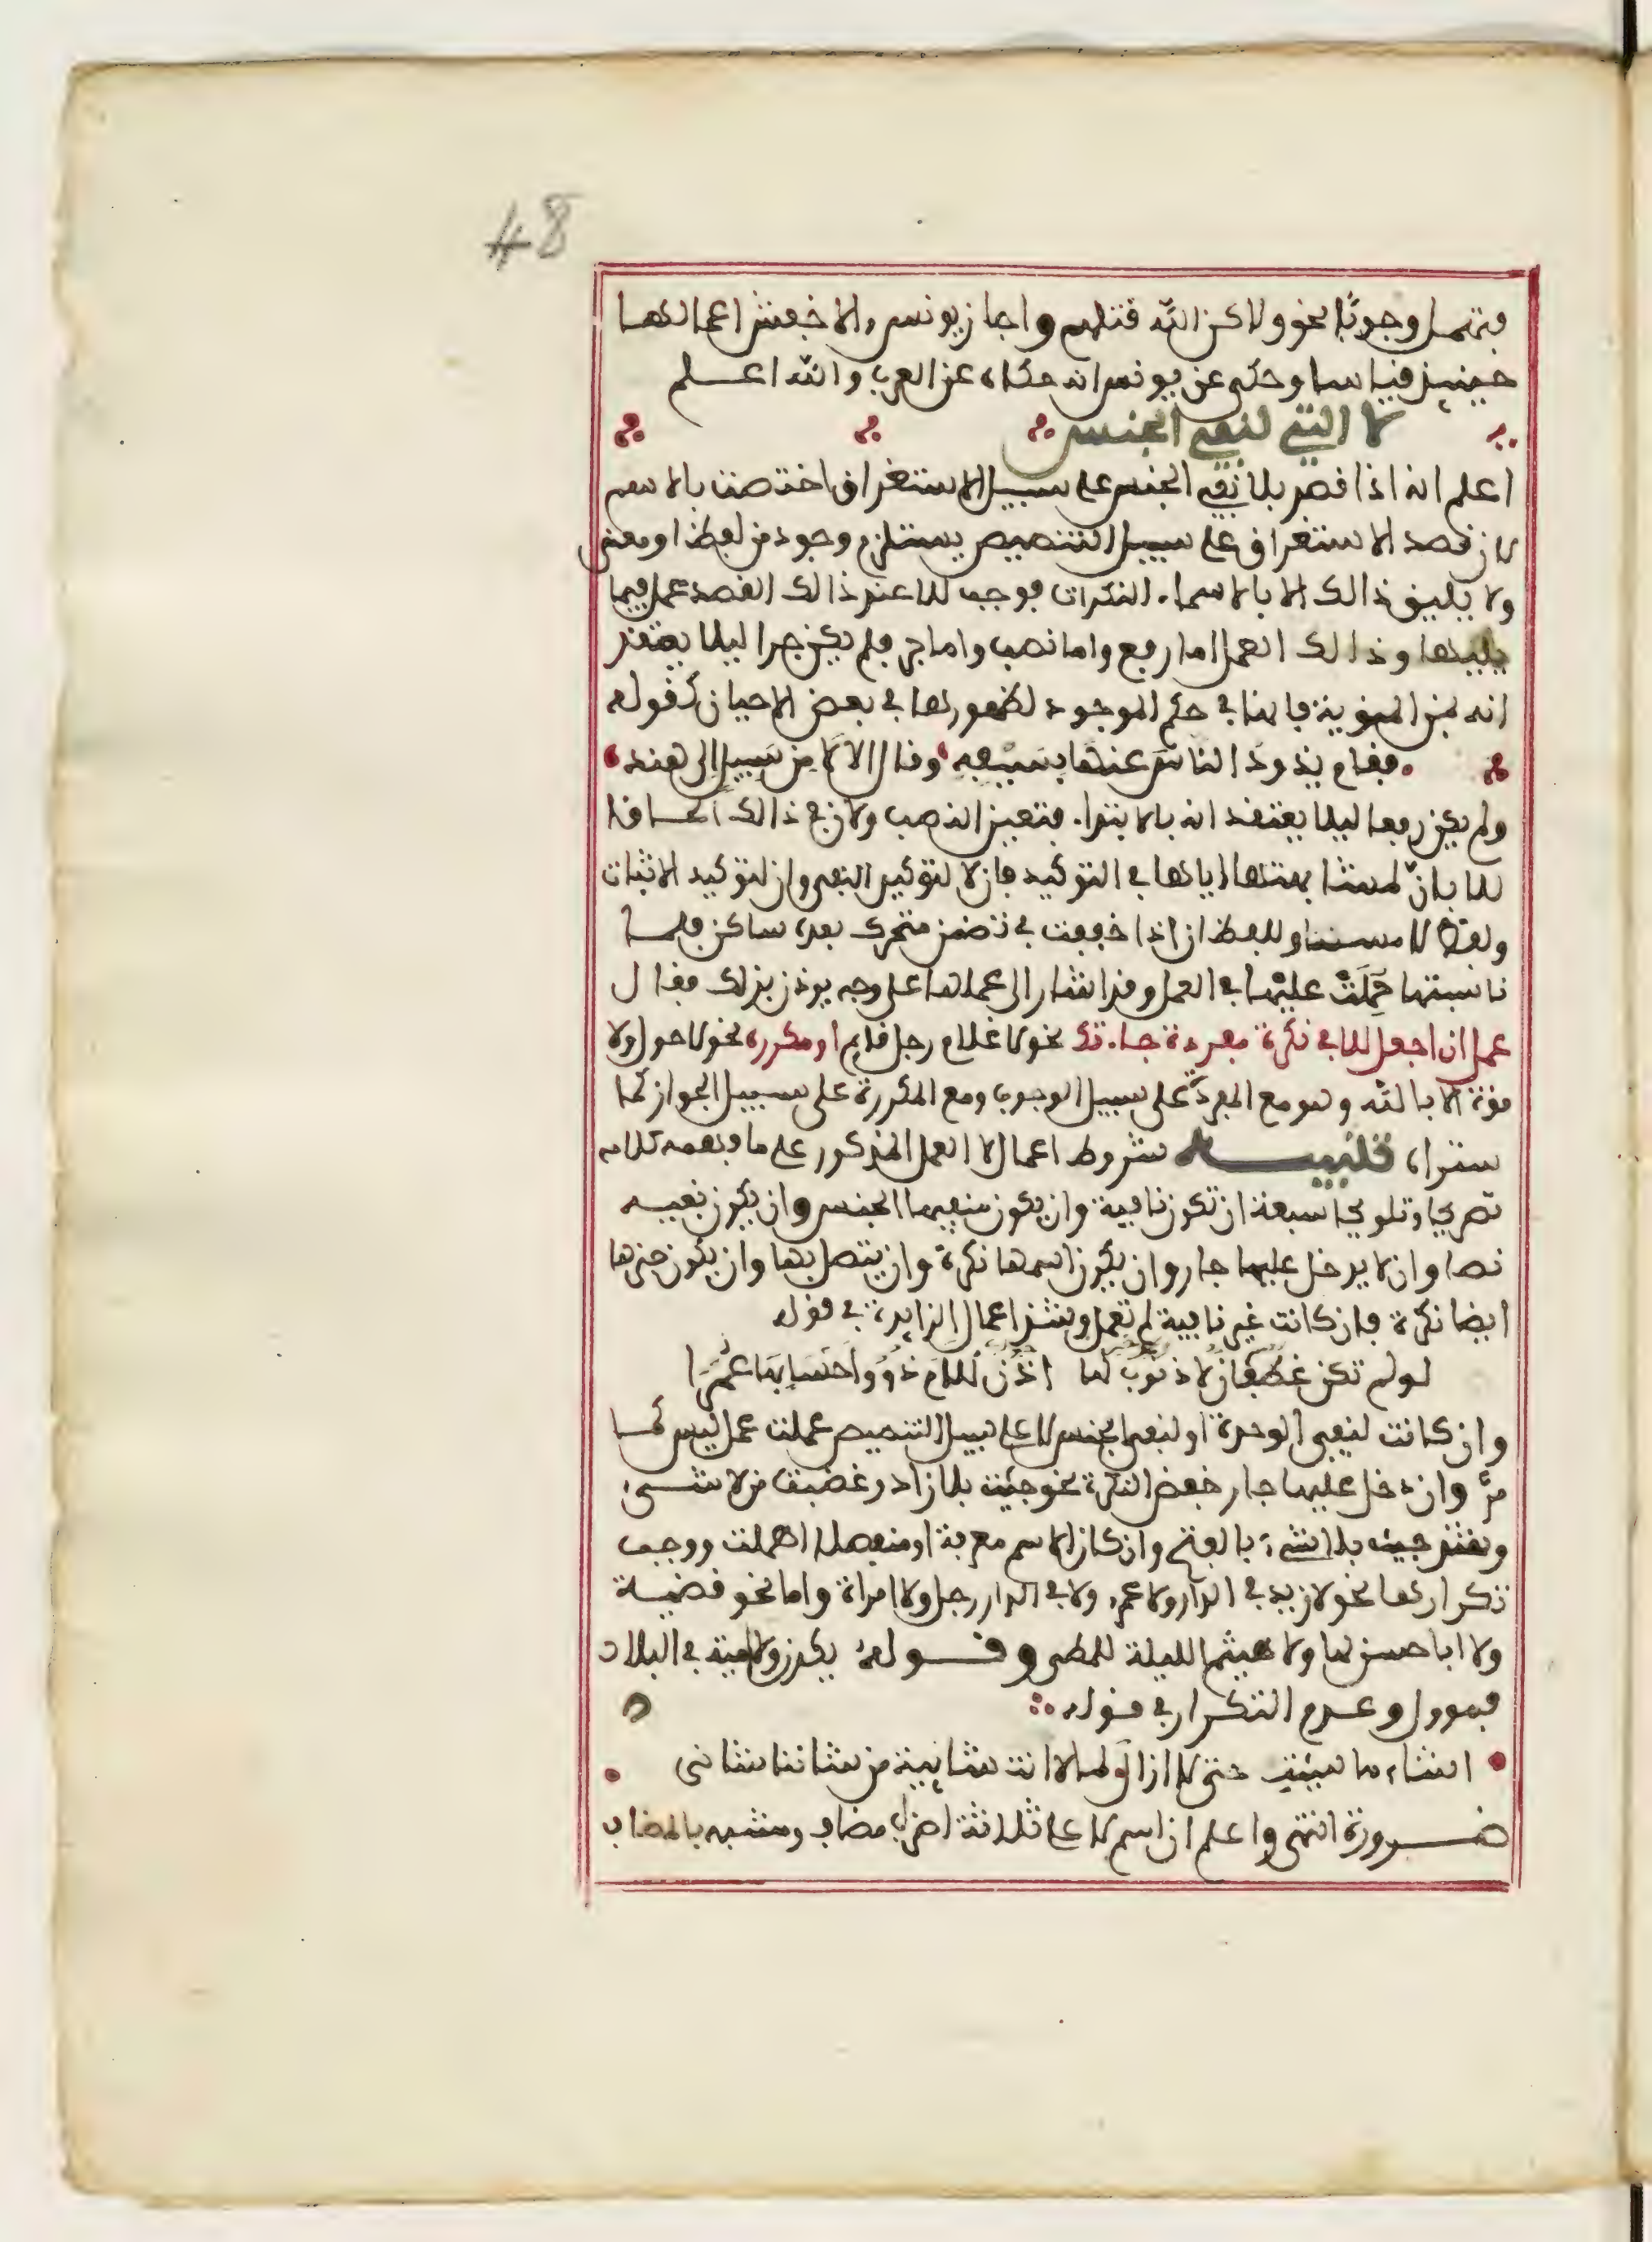 48
فتهمل وجوبا نحو ولاكن الله قتلهم واجاز يونس والاخفش اعمالها
حينيذ قياسا وحكى عن يونس انه حكاه عن العرب والله اعلم
لا التي لنفي الجنس
اعلم انه اذا قصد بلا نفي الجنس على سبيل الاستغراق اختصت بالاسم
لان قصد الاستغراق على سبيل التنصيص يستلزم وجود من لفظا او معنى
ولا يليق ذالك الا بالاسماء النكرات فوجب للا عند ذالك القصد عمل فيما
يليها وذالك العمل اما رفع واما نصب واما جر فلم يكن جرا ليلا يعتقد
انه بمن المنوية فانها في حكم الموجود لظهورها في بعض الاحيان كقوله
فقام يذود الناس عنها بسيفه وقال الا لا من سبيل الى هند
ولم يكن رفعا ليلا يعتقد انه بالابتداء فتعين النصب ولان في ذالك الحاقا
للا بان لمشابهتها اياها في التوكيد فان لا لتوكيد النفي وان لتوكيد الاثبات
ولفظ لا مساو للفظ ان اذا خففت في تضمن متحرك بعده ساكن فلما
ناسبتها حملت عليها في العمل وقد اشار الى عملها على وجه يوذن بذلك فقال
عمل ان اجعل للا في نكرة مفردة جاءتك نحو لا غلام رجل قايم او مكررة نحو لا حول ولا
قوة الا بالله وهو مع المفردة على سبيل الوجوب ومع المكررة على سبيل الجواز كما
ستراه تنبيه شروط اعمال لا العمل المذكور على ما يفهمه كلامه
تصريحا وتلويحا سبعة ان تكون نافية وان يكون منفيها الجنس وان يكون نفيه
نصا وان لا يدخل عليها جار وان يكون اسمها نكرة وان يتصل بها وان يكون خبرها
ايضا نكرة فان كانت غير نافية لم تعمل وشذ اعمال الزايدة في قوله
لو لم تكن غطفان لا ذنوب لها اذن للام ذوو احسابها عمرا
وان كانت لنفي الوحدة او لنفي الجنس لا على سبيل التنصيص عملت عمل ليس كما
مر وان دخل عليها جار خفض النكرة نحو جيت بلا زاد وغضبت من لا شيء
وشذ جيت بلا شيء بالفتح وان كان الاسم معرفة او منفصلا اهملت ووجب
تكرارها نحو لا زيد في الدار ولا عمرو ولا في الدار رجل ولا امراة واما نحو قضية
ولا ابا حسن لها ولا هيثم الليلة للمطي وقوله يكدن ولا امية في البلاد
فموول وعدم التكرار في قوله
اشاء ما شيت حتى لا ازال لما لا انت شايية من شاننا شاني
ضرورة انتهى واعلم ان اسم لا على ثلاثة اضرب مضاف ومشبه بالمضاف